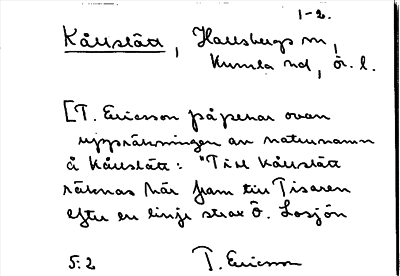 1-2.
Kårstätt, Hallsbergs sn,
Kumla hd, ör. l.
[T. Ericsson påpekar ovan
uppräkningen av naturnamn
å Kårstätt: "Till Kårstätt
räknas här fram till Tisaren
efter en linje strax Ö. Losjön
5:2 T. Ericsson